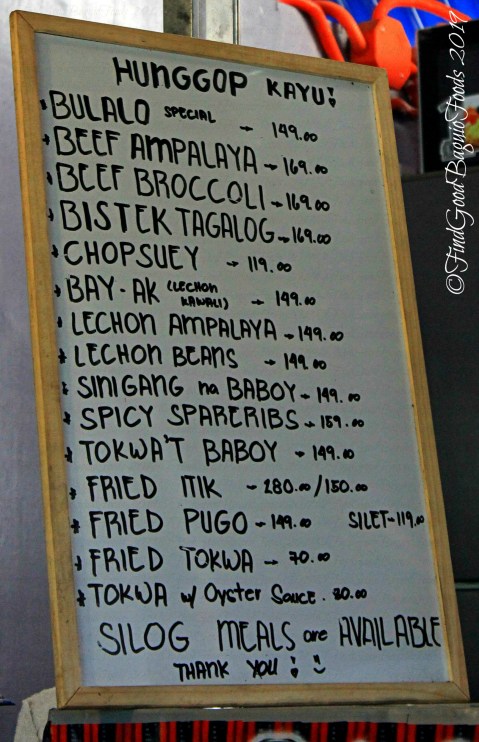 HUNGGOP KAYU!
BULALO SPECIAL - 149.00
BEEF AMPALAYA - 169.00
BEEF BROCCOLI - 169.00
BISTEK TAGALOG - 169.00
CHOPSUEY - 119.00
BAY-AK (LECHON KAWALI) - 149.00
LECHON AMPALAYA - 149.00
LECHON BEANS - 149.00
SINIGANG na BABOY - 149.00
SPICY SPARERIBS - 159.00
TOKWA'T BABOY - 149.00
FRIED ITIK - 280.00/150.00
FRIED PUGO - 149.00 SILET - 119.00
FRIED TOKWA - 70.00
TOKWA w/ Oyster Sauce . 80.00
SILOG MEALS are AVAILABLE
THANK YOU!
©FindGoodBaguioFoods 2019